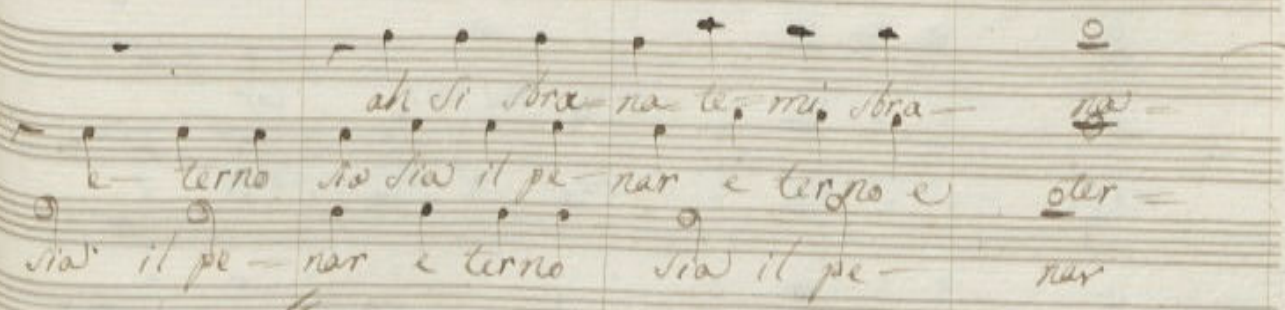 ah si sbra- na- te- mi sbra- na-
e- terno sia sia il pe- nar e terno e ter-
sia il pe- nar e terno sia il pe- nar